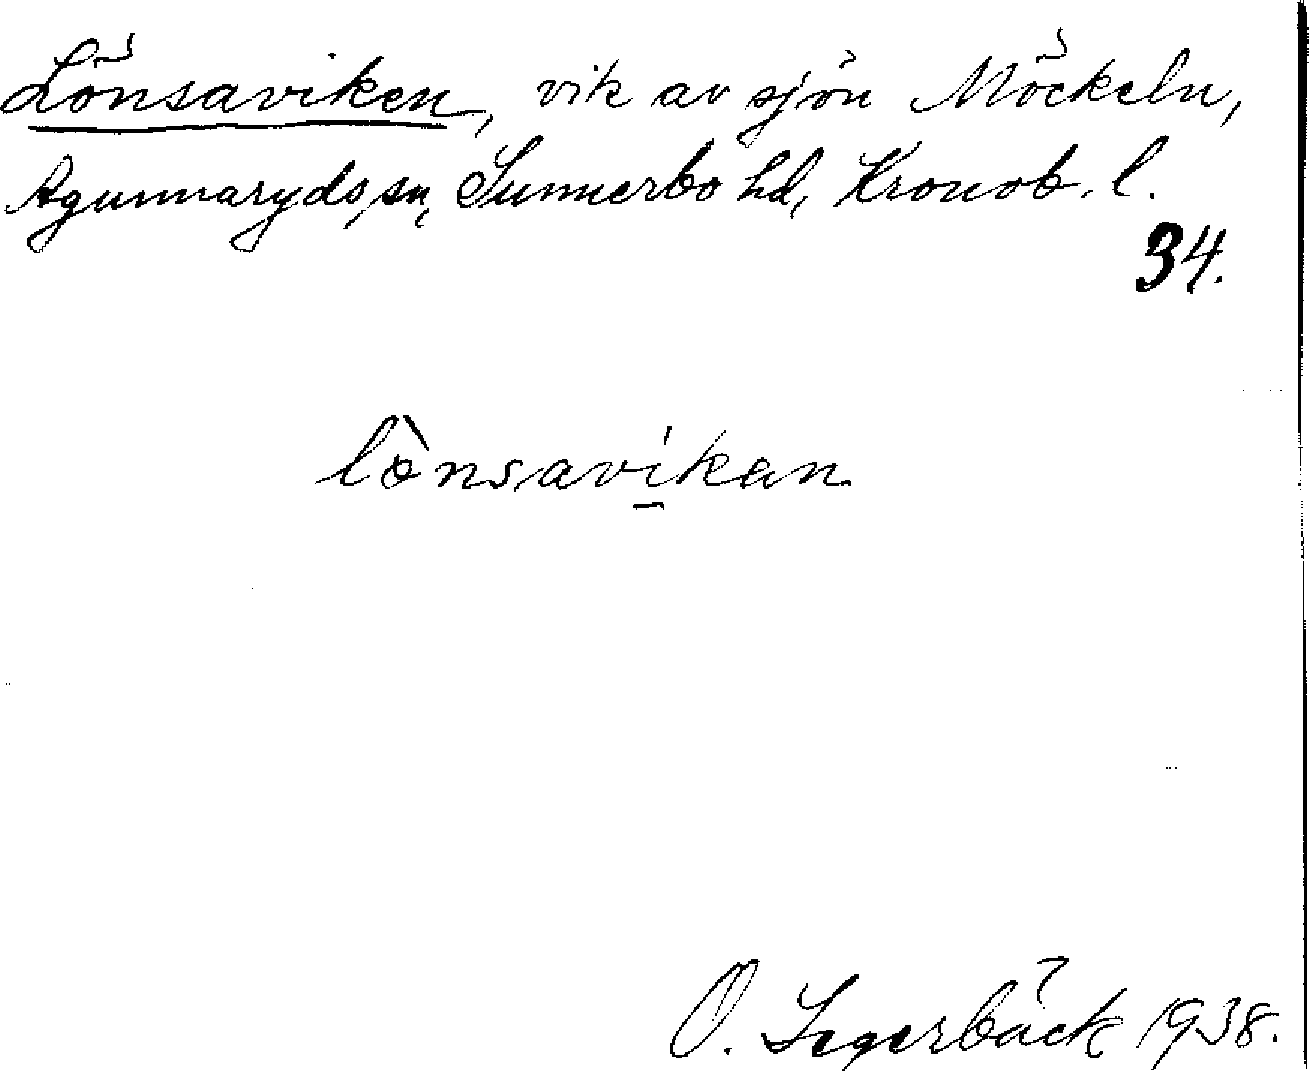 Lönsaviken, vik av sjön Möckeln,
Agunnaryds sn, Sunnerbo hd, Kronob. l.
34.
lὼnsavíkan
O. Segerbäck 1938.